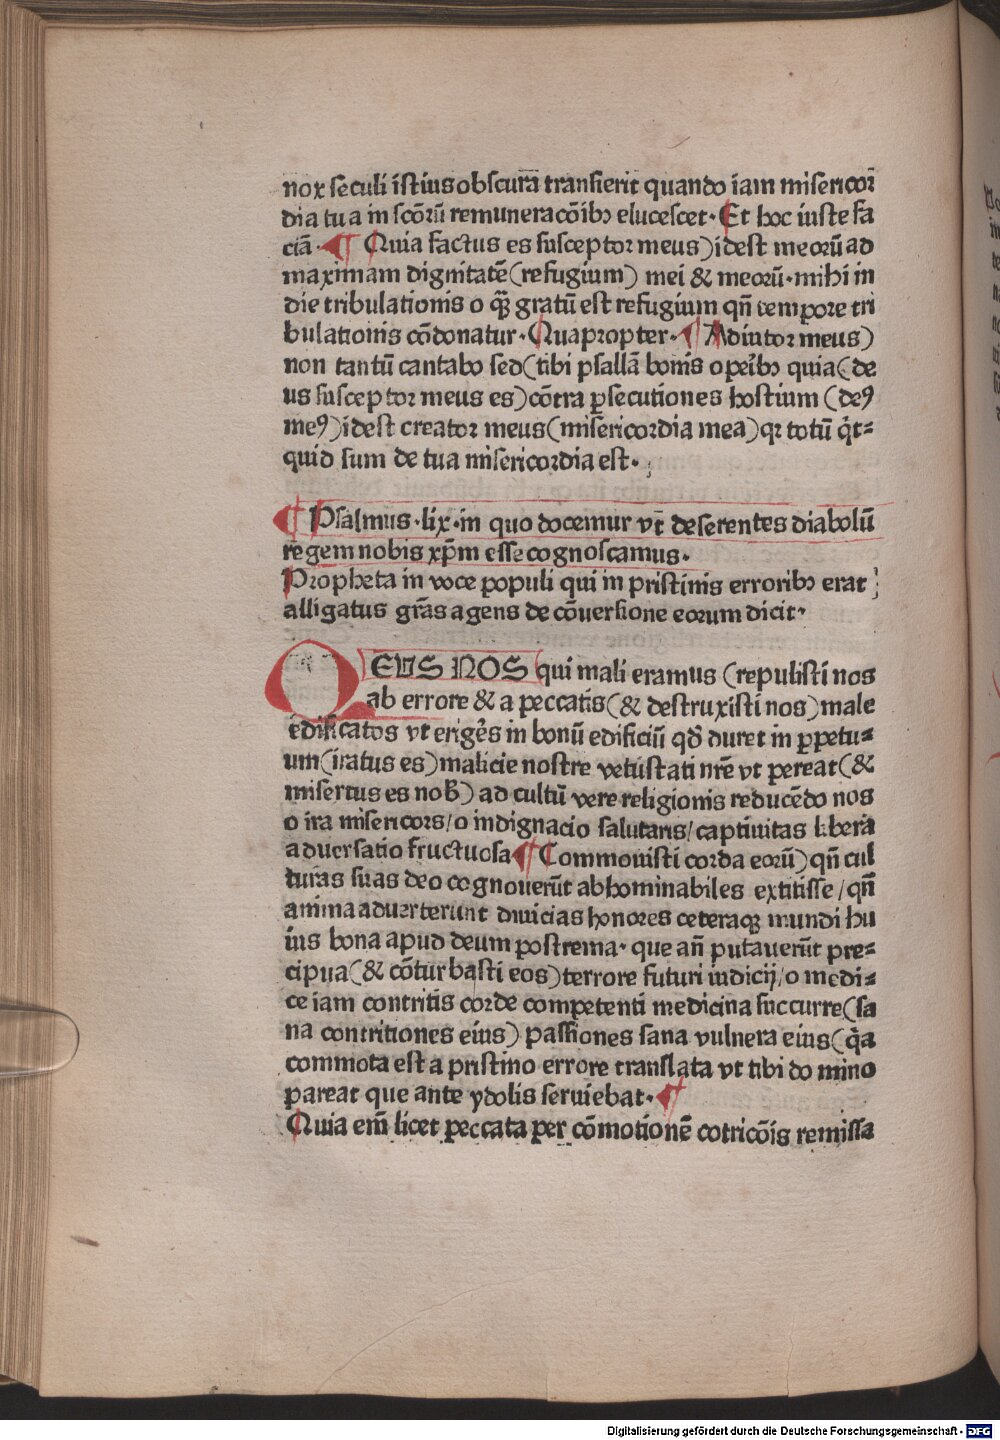 nox seculi istius obscura transierit quando iam misericor
dia tua in scōrū remuneracōibꝫ elucescet· Et hoc iuste fa
ciā· ¶ Quia factus es susceptor meus) idest meorū ad
maximam dignitatē (refugium) mei & meorū· mihi in
die tribulationis o qꝫ gratū est refugium qn̄ tempore tri
bulationis cōdonatur· Quapropter· ¶ Adiutor meus)
non tantū cantabo sed (tibi psallā bonis operibꝫ quia (de
us susceptor meus es) cōtra ꝑsecutiones hostium (deꝰ
meꝰ) idest creator meus (misericordia mea) qꝛ totū q̇t⸗
quid sum de tua misericordia est·
¶ Psalmus· lix· in quo docemur vt deserentes diabolū
regem nobis xp̄m esse cognoscamus·
Propheta in voce populi qui in pristinis erroribꝫ erat
alligatus gr̄as agens de cōuersione eorum dicit·
DEUS NOS qui mali eramus (repulisti nos
ab errore & a peccatis (& destruxisti nos) male
edificatos vt erigēs in bonū edificiū qd̄ duret in ꝑpetu⸗
um (iratus es) malicie nostre vetustati nr̄e vt pereat (&
misertus es nob̄) ad cultū vere religionis reducēdo nos
o ira misericors/ o indignacio salutaris/ captiuitas libera
aduersatio fructuosa ¶ Commouisti corda eorū) qn̄ cul
turas suas deo cognouerūt abhominabiles extitisse/ qn̄
animaaduerterunt diuicias honores ceteraqꝫ mundi hu
ius bona apud deum postrema· que an̄ putauerūt pre⸗
cipua (& cōturbasti eos) terrore futuri iudicij/ o medi⸗
ce iam contritis corde competenti medicina succurre (sa
na contritiones eius) passiones sana vulnera eius (q̇a
commota est a pristino errore translata vt tibi domino
pareat que ante ydolis seruiebat· ¶
Quia em̄ licet peccata per cōmotionē cotricōis remissa
Digitalisierung gefördert durch die Deutsche Forschungsgemeinschaft - DFG